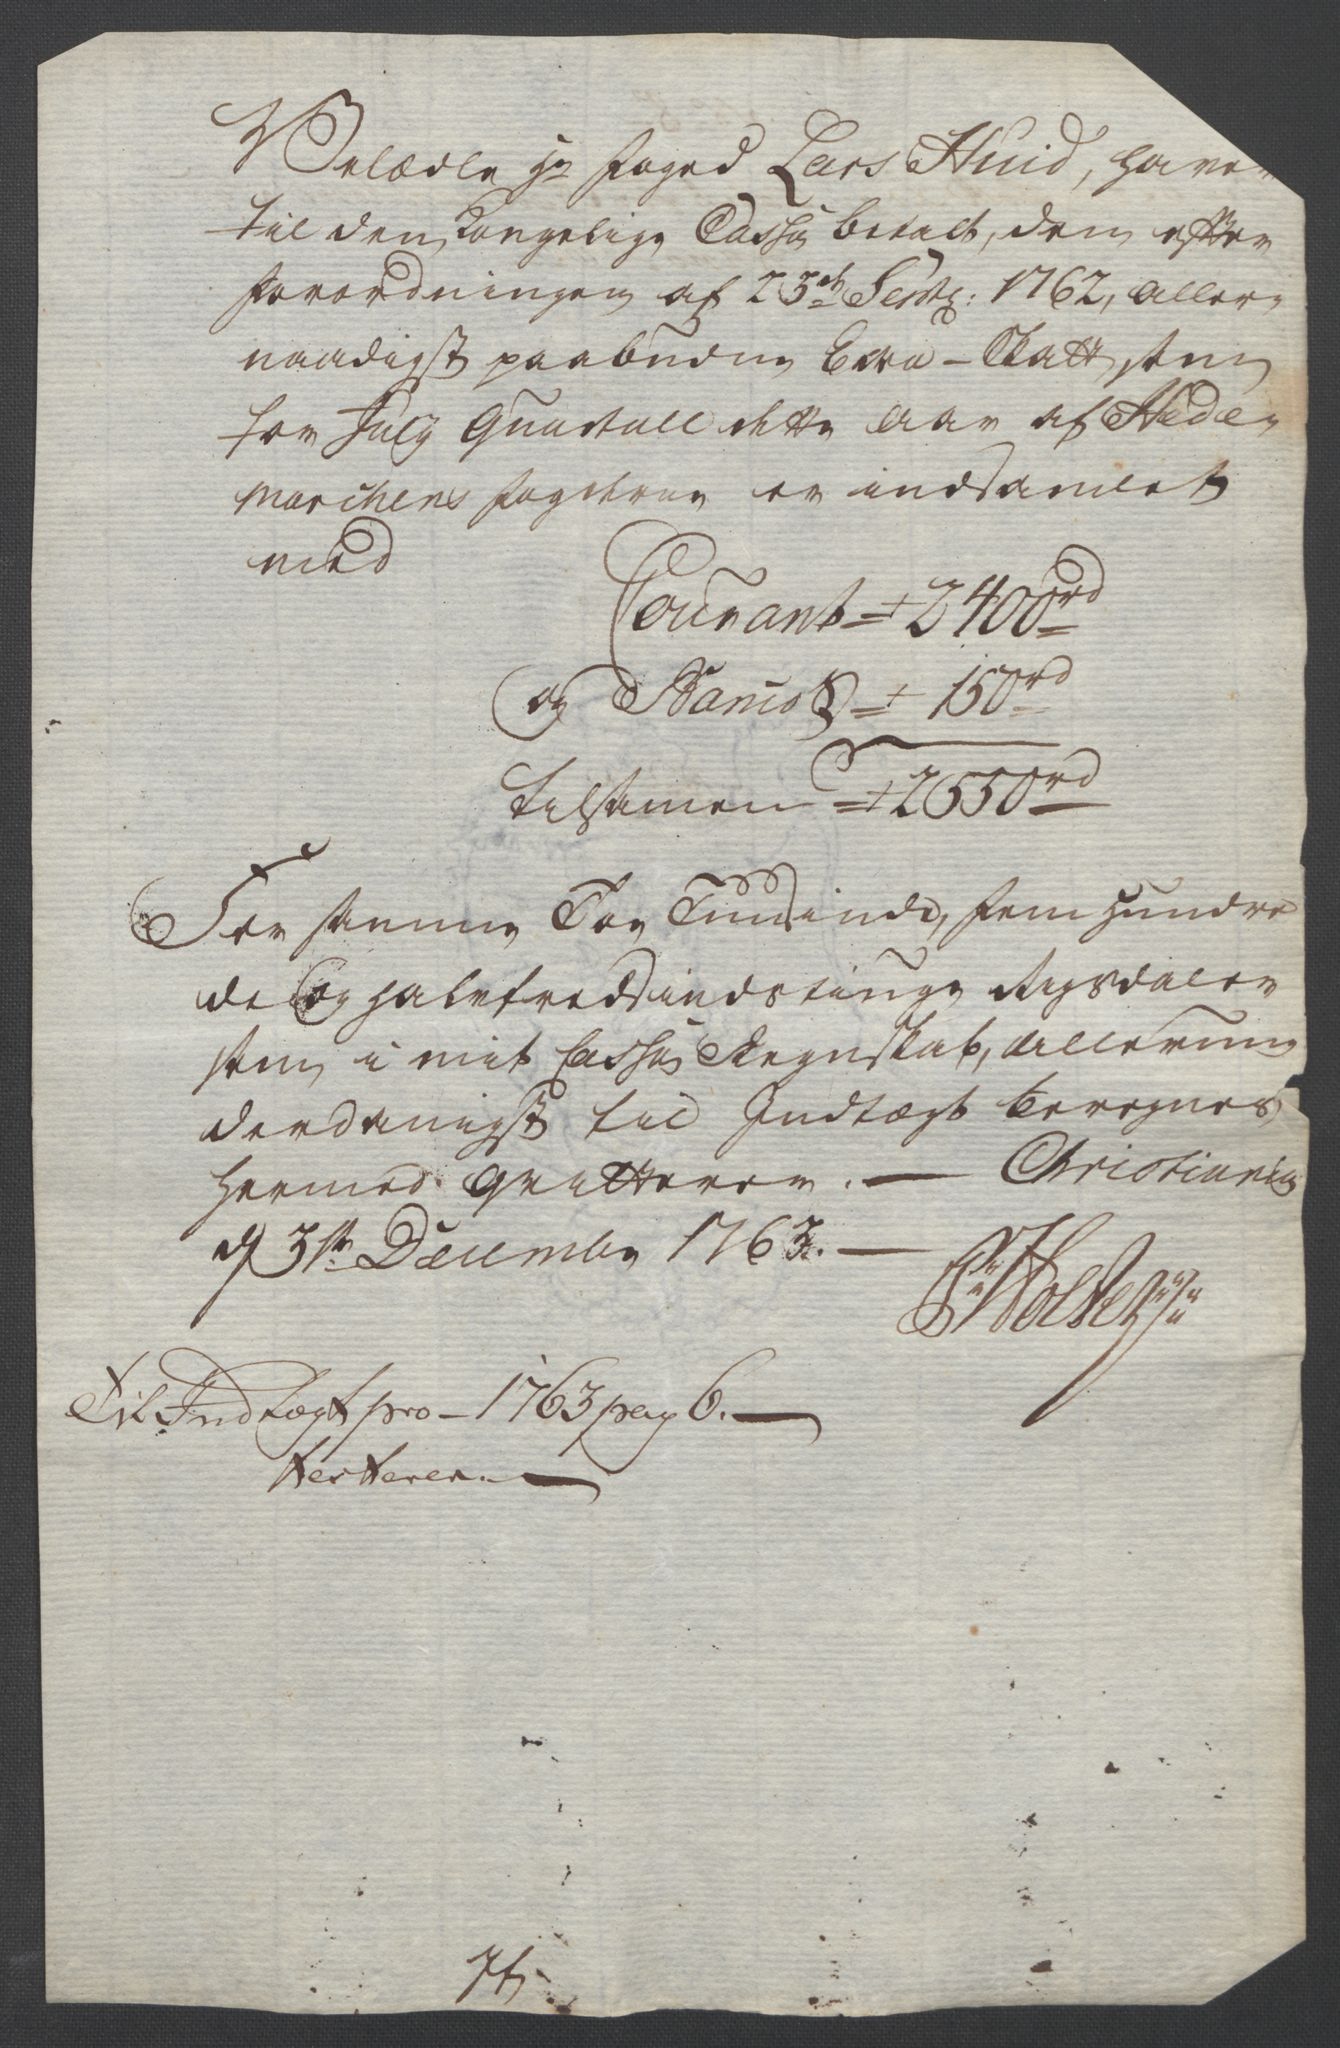 Velædle Hr Foged Lars Huid, haver
til den Kongelige Cassa betalt, den efter
Forordningen af 23de Septbr: 1762, aller
naadigst paabudne Extra-Skatt, som
for July Quartall dette Aar af Hede
marchens Fogderie er indsamlet
med
Courant = 2400rd
og Banco S = 150rd
tilsamen = 2550rd
For samme Toe Tuusinde, fem Hundre
de og halvtredsindstiuge Rigsdaler
som i mit Cassa Regnskab, allerun
derdanigst til Indtægt beregnes,
hermed qvitteres. — Christiania
d 31te December 1763. —
Holter
Til Indtægt pro - 1763 pag 6. —
testerer. —